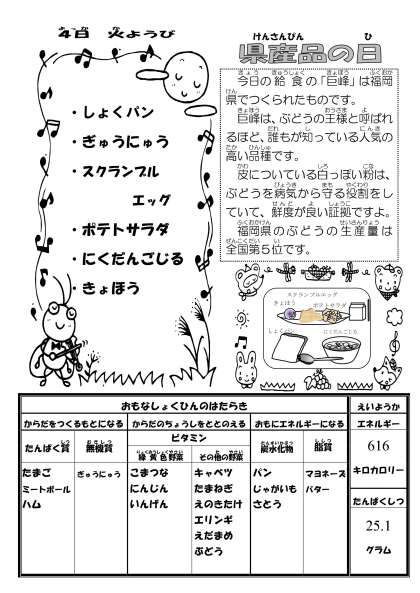 4日 火ようび
・しょくパン
・ぎゅうにゅう
・スクランブル
エッグ
・ポテトサラダ
・にくだんごじる
・きょほう
県産品の日
今日の給食の「巨峰」は福岡
県でつくられたものです。
巨峰は、ぶどうの王様と呼ばれ
るほど、誰もが知っている人気の
高い品種です。
皮についている白っぽい粉は、
ぶどうを病気から守る役割をし
ていて、鮮度が良い証拠ですよ。
福岡県のぶどうの生産量は
全国第5位です。
スクランブルエッグ
きょほう
ポテトサラダ
しょくパン
にくだんごじる
おもなしょくひんのはたらき
えいようか
からだをつくるもとになる からだのちょうしをととのえる おもにエネルギーになる
エネルギー
たんぱく質 無機質 ビタミン 炭水化物 脂質
緑黄色野菜 その他の野菜
616
キロカロリー
たまご ぎゅうにゅう こまつな キャベツ パン マヨネーズ
ミートボール にんじん たまねぎ じゃがいも バター
ハム いんげん えのきたけ さとう
エリンギ
えだまめ
ぶどう
たんぱくしつ
25.1
グラム